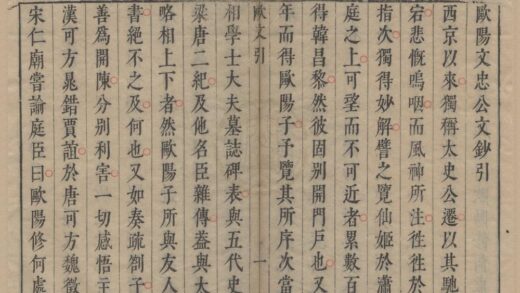 歐陽文忠公文鈔引
西京以來獨稱太史公遷以其馳
宕悲慨嗚咽而風神所注徃徃於
指次獨得妙解譬之覽仙姬於瀟
庭之上可望而不可近者累數百
年而得韓昌黎然彼固别開門戶也又
年而得歐陽子予覽其所序次當
歐文引
一
相學士大夫墓誌碑表與五代史
梁唐二紀及他名臣雜傳蓋與太
略相上下者然歐陽子所與友人
書絕不之及何也又如奏疏劄子
善為開陳分别利害一切感悟主
漢可方晁錯賈誼於唐可方魏徵
宋仁廟嘗諭庭臣曰歐陽修何處